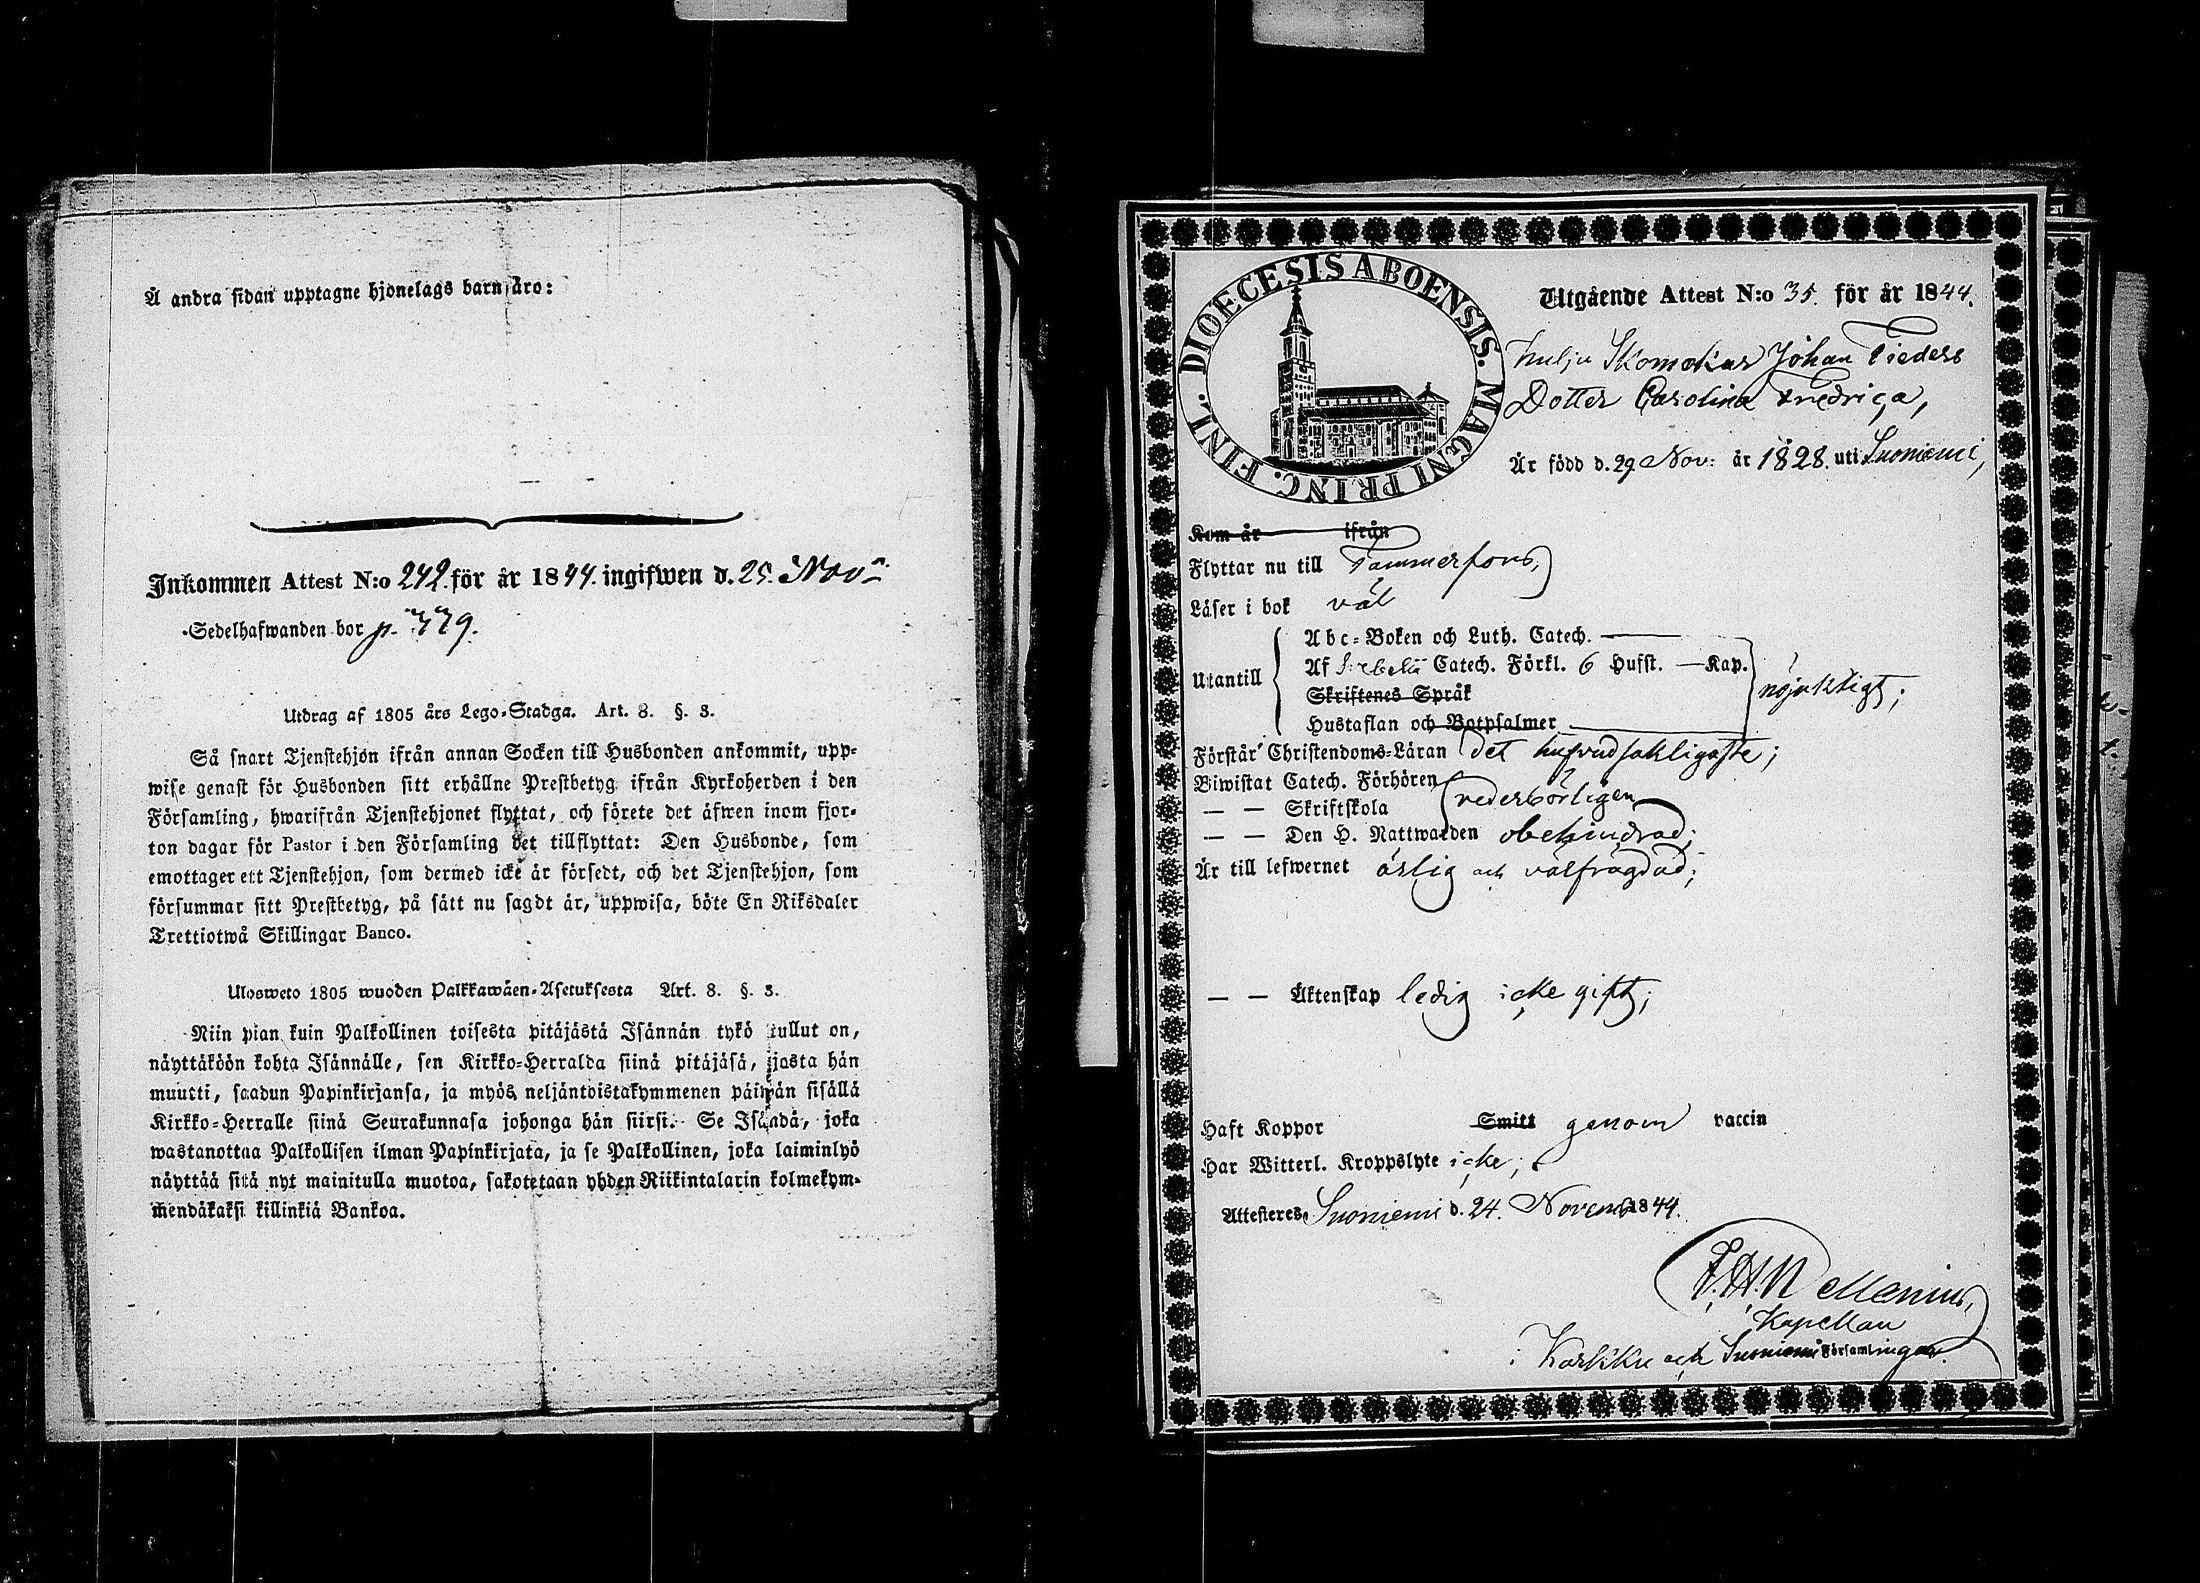 Å andra sidan upptagne hjonelags barn äro:
Inkommen Attest N:o 242. för år 1844. ingifwen d. 25. Nov:
Sedelhafwanden bor p.
Utdrag af 1805 års Lego-Stadga. Art. 8. §. 3.
Så snart Tjenstehjon ifrån annan Socken till Husbonden ankommit, upp-
wise genast för Husbonden sitt erhållne Prestbetyg ifrån Kyrkoherden i den
Församling, hwarifrån Tjenstehjonet flyttat, och förete det äfwen inom fjor-
ton dagar för Pastor i den Församling det tillflyttat: Den Husbonde, som
emottager ett Tjenstehjon, som dermed icke är försedt, och det Tjenstehjon, som
försummar sitt Prestbetyg, på sätt nu sagdt är, uppwisa, böte En Riksdaler
Trettiotwå Skillingar Banco.
Ulosweto 1805 wuoden Palkkawäen-Asetuksesta Art. 8. §. 3.
Niin pian kuin Palkollinen toisesta pitäjästä Isännän tykö tullut on,
näyttäköön kohta Isännälle, sen Kirkko-Herralda siinä pitäjäsä, josta hän
muutti, saadun Papinkirjansa, ja myös neljäntoistakymmenen päiwän sisällä
Kirkko-Herralle siinä Seurakunnasa johonga hän siirsi. Se Isändä, joka
wastanottaa Palkollisen ilman Papinkirjata, ja se Palkollinen, joka laiminlyö
näyttää sitä nyt mainitulla muotoa, sakotetaan yhden Riikintalarin kolmekym-
mendäkaksi killinkiä Bankoa.
DIOECESIS ABOENSIS. MAGNI PRINC. FINL.
Utgående Attest N:o 35. för år 1844.
Skomakar Johan
Dotter Carolina Fredrica,
Är född d. 29 Nov: år 1828. uti Suoniemi,
Kom år ifrån
Flyttar nu till Tammerfors,
Läser i bok väl
Utantill
Abc-Boken och Luth. Catech.
Af Catech. Förkl. 6 Hufst. — Kap.
Skriftenes Språk
Hustaflan och Botpsalmer
nöjaktigt;
Förstår Christendoms-Läran det hufvudsakligaste;
Biwistat Catech. Förhören
— — Skriftskola vederbörligen
— — Den H. Nattwarden obehindrad;
Är till lefwernet ärlig och välfrägdad;
— — Äktenskap ledig icke gift;
Haft Koppor Smitt genom vaccin
Har Witterl. Kroppslyte icke;
Attesteres, Suoniemi d. 24. Novemb 1844.
Kapellan
i Karkku och Suoniemi Församlingar.